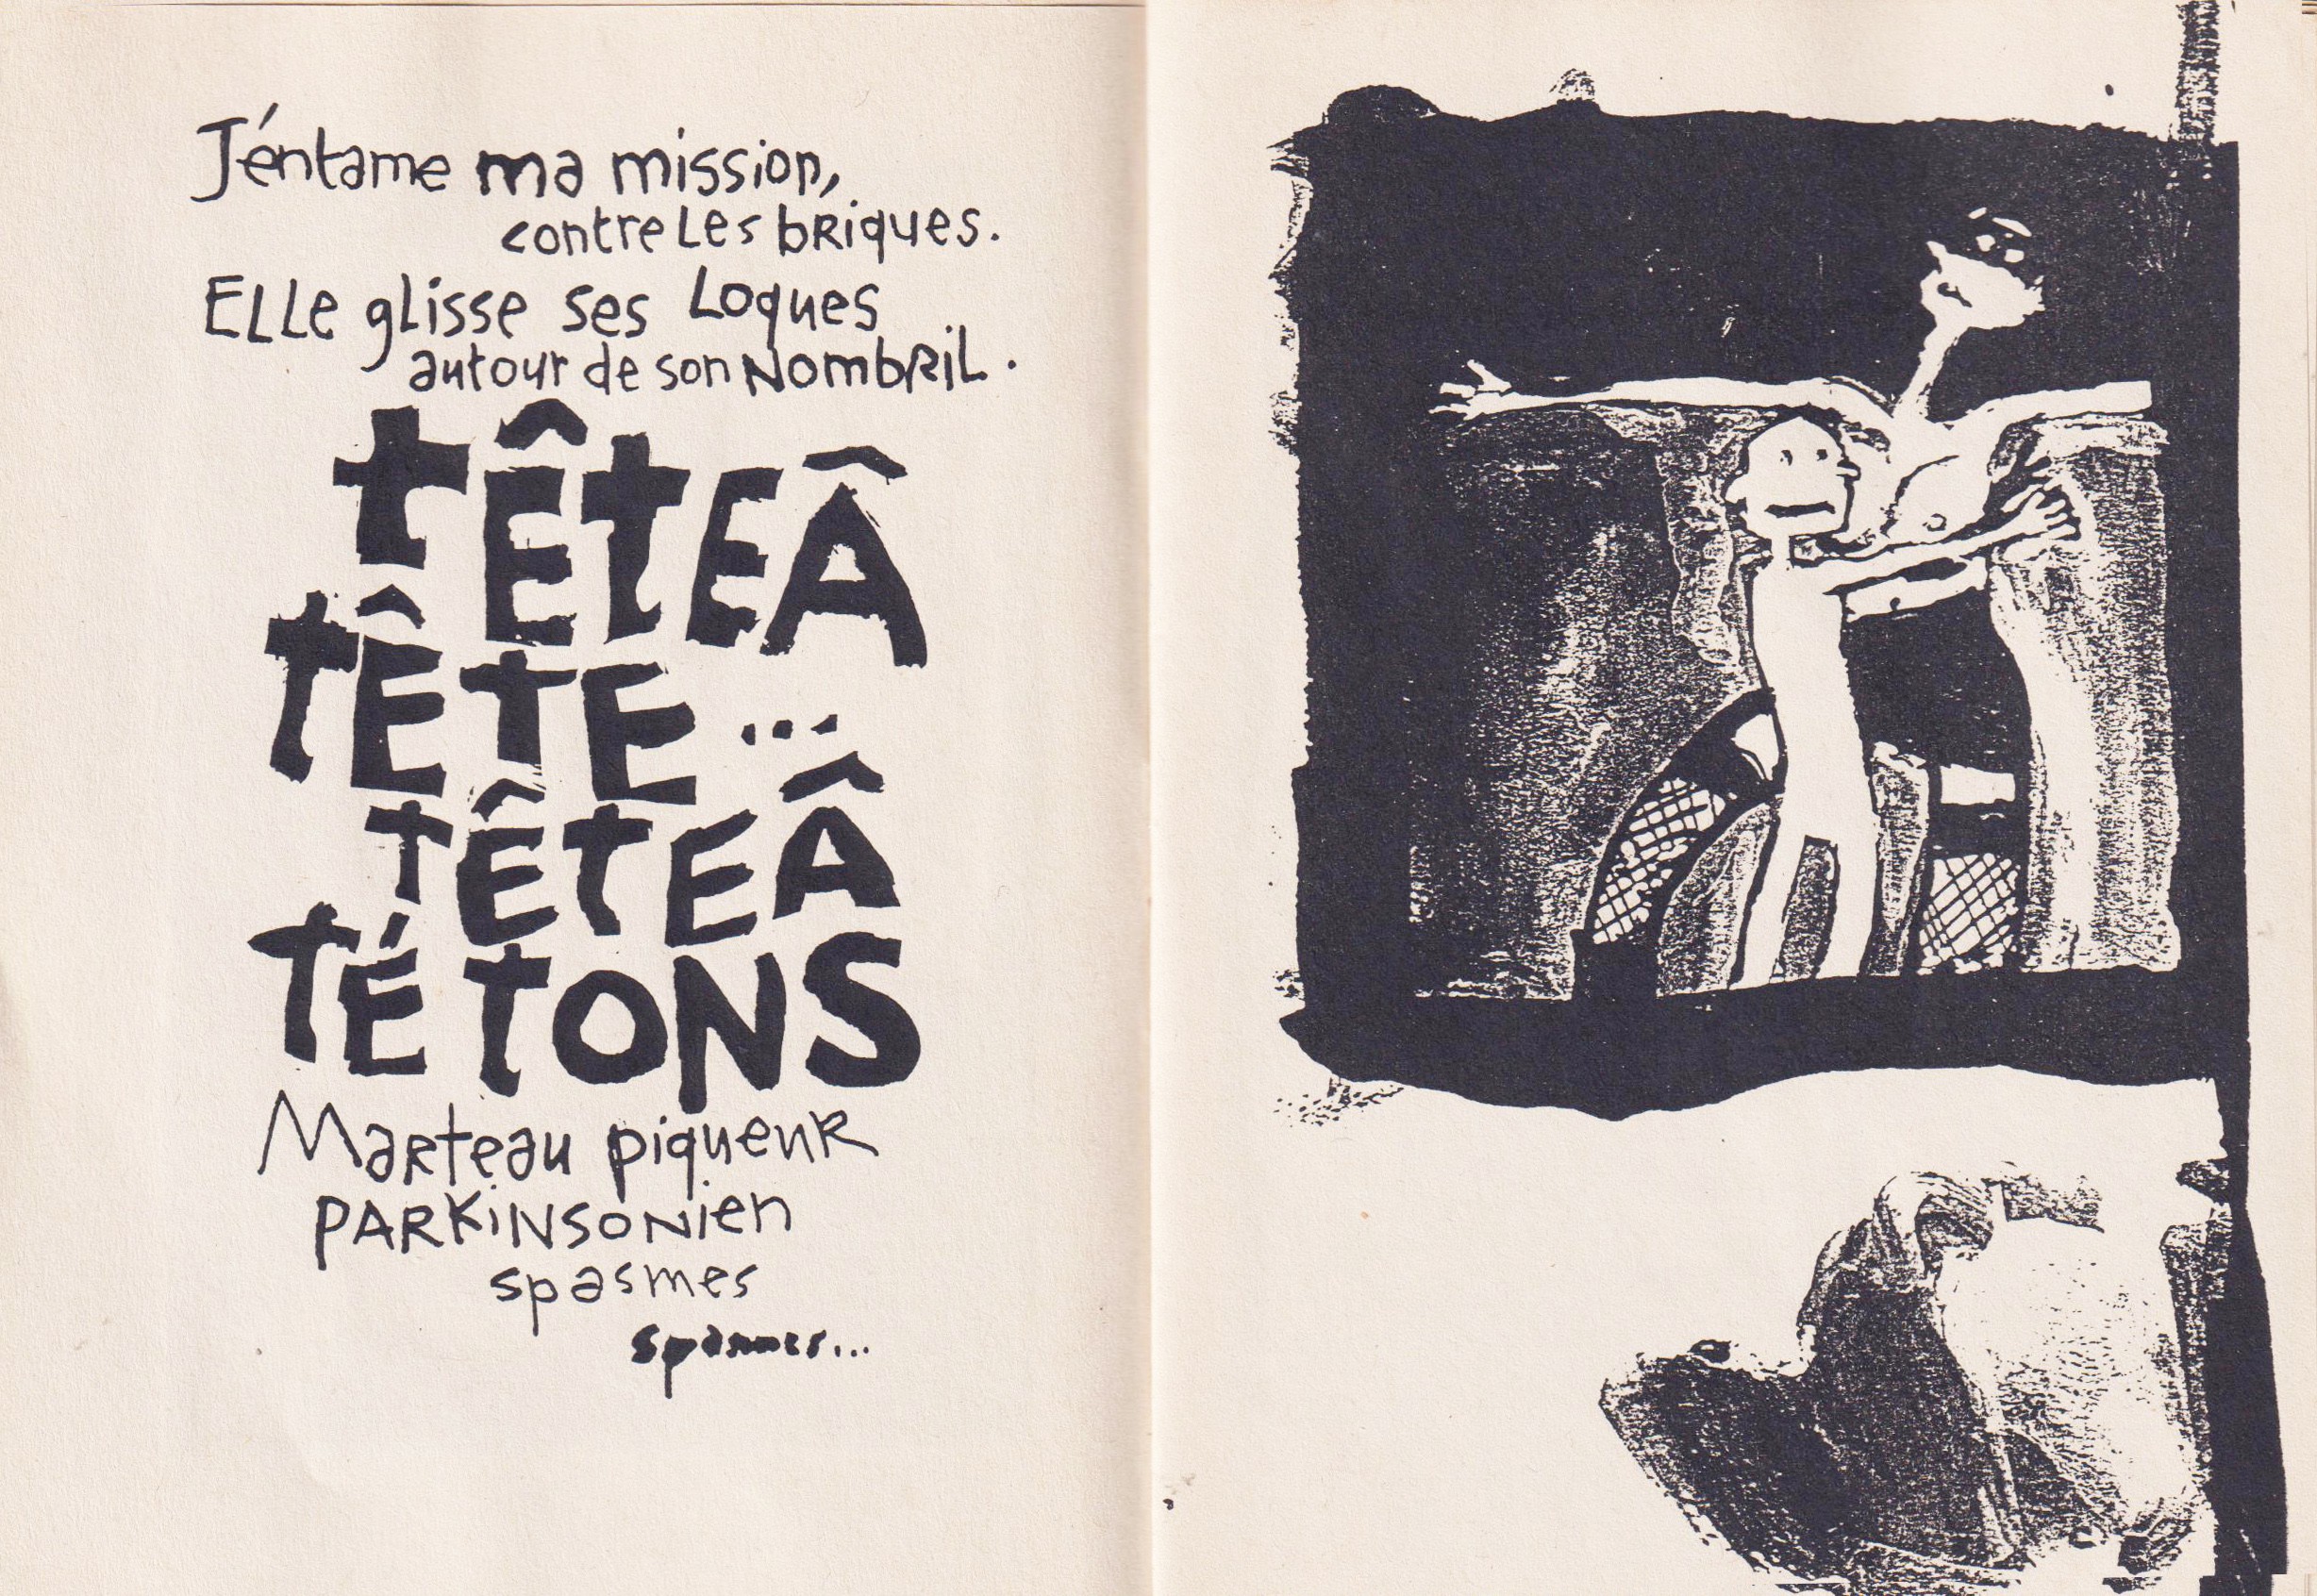 J'éntame ma mission,
contre les briques.
Elle glisse ses loques
autour de son nombril.
têteâ
tête...
têteâ
tétons
Marteau piqueur
parkinsonien
spasmes
spasmes...